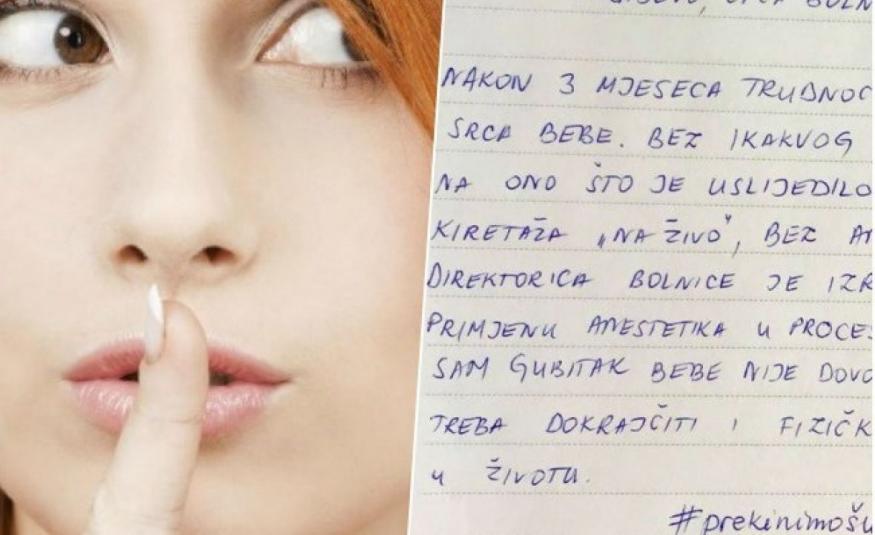 NAKON 3 MJESECA TRUDNOĆ
SRCA BEBE. BEZ IKAKVOG
NA ONO ŠTO JE USLIJEDILO
KIRETAŽA „NA ŽIVO", BEZ AN
DIREKTORICA BOLNICE JE IZR
PRIMJENU ANESTETIKA U PROCES
SAM GUBITAK BEBE NIJE DOVO
TREBA DOKRAJČITI I FIZIČK
U ŽIVOTU.
#prekinimošu